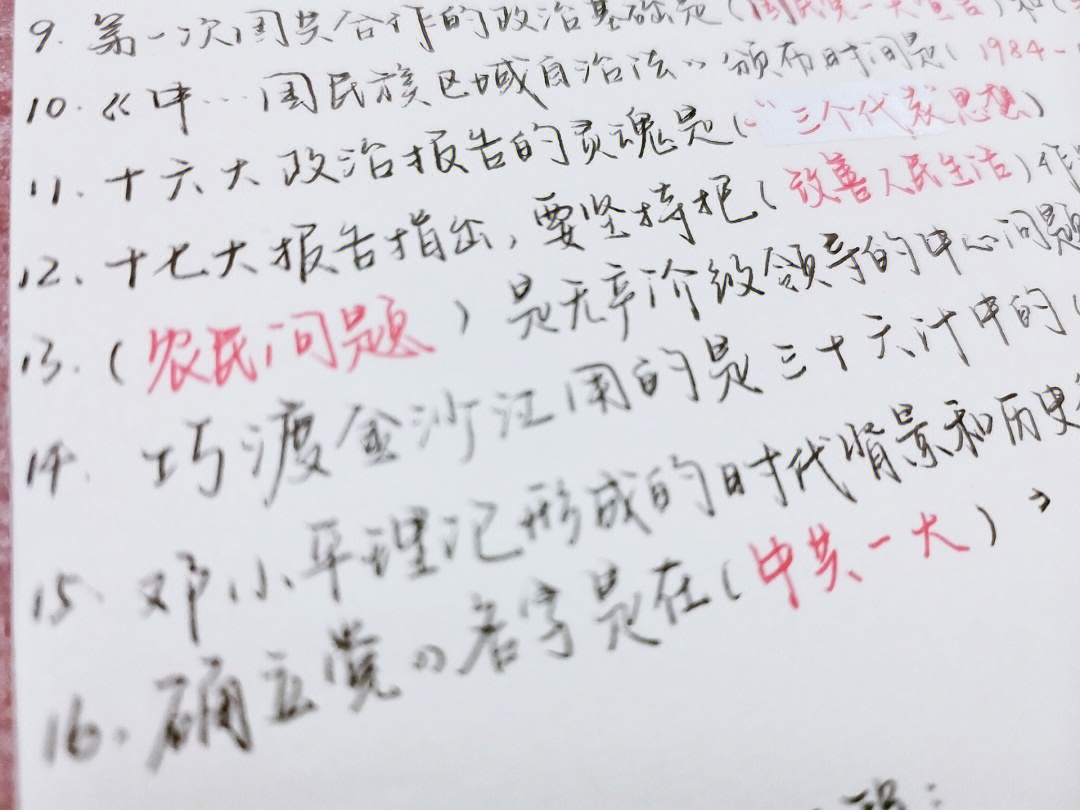 9. 第一次国共合作的政治基础是(国民党一大宣言)和(
10. 《中…国民族区域自治法》颁布时间是( 1984-
11. 十六大政治报告的灵魂是(“三个代表思想)
12. 十七大报告指出,要坚持把(改善人民生活)作
13. (农民问题)是无产阶级领导的中心问题
14. 巧渡金沙江用的是三十六计中的(
15. 邓小平理论形成的时代背景和历史
16. 确立党的名字是在(中共一大)